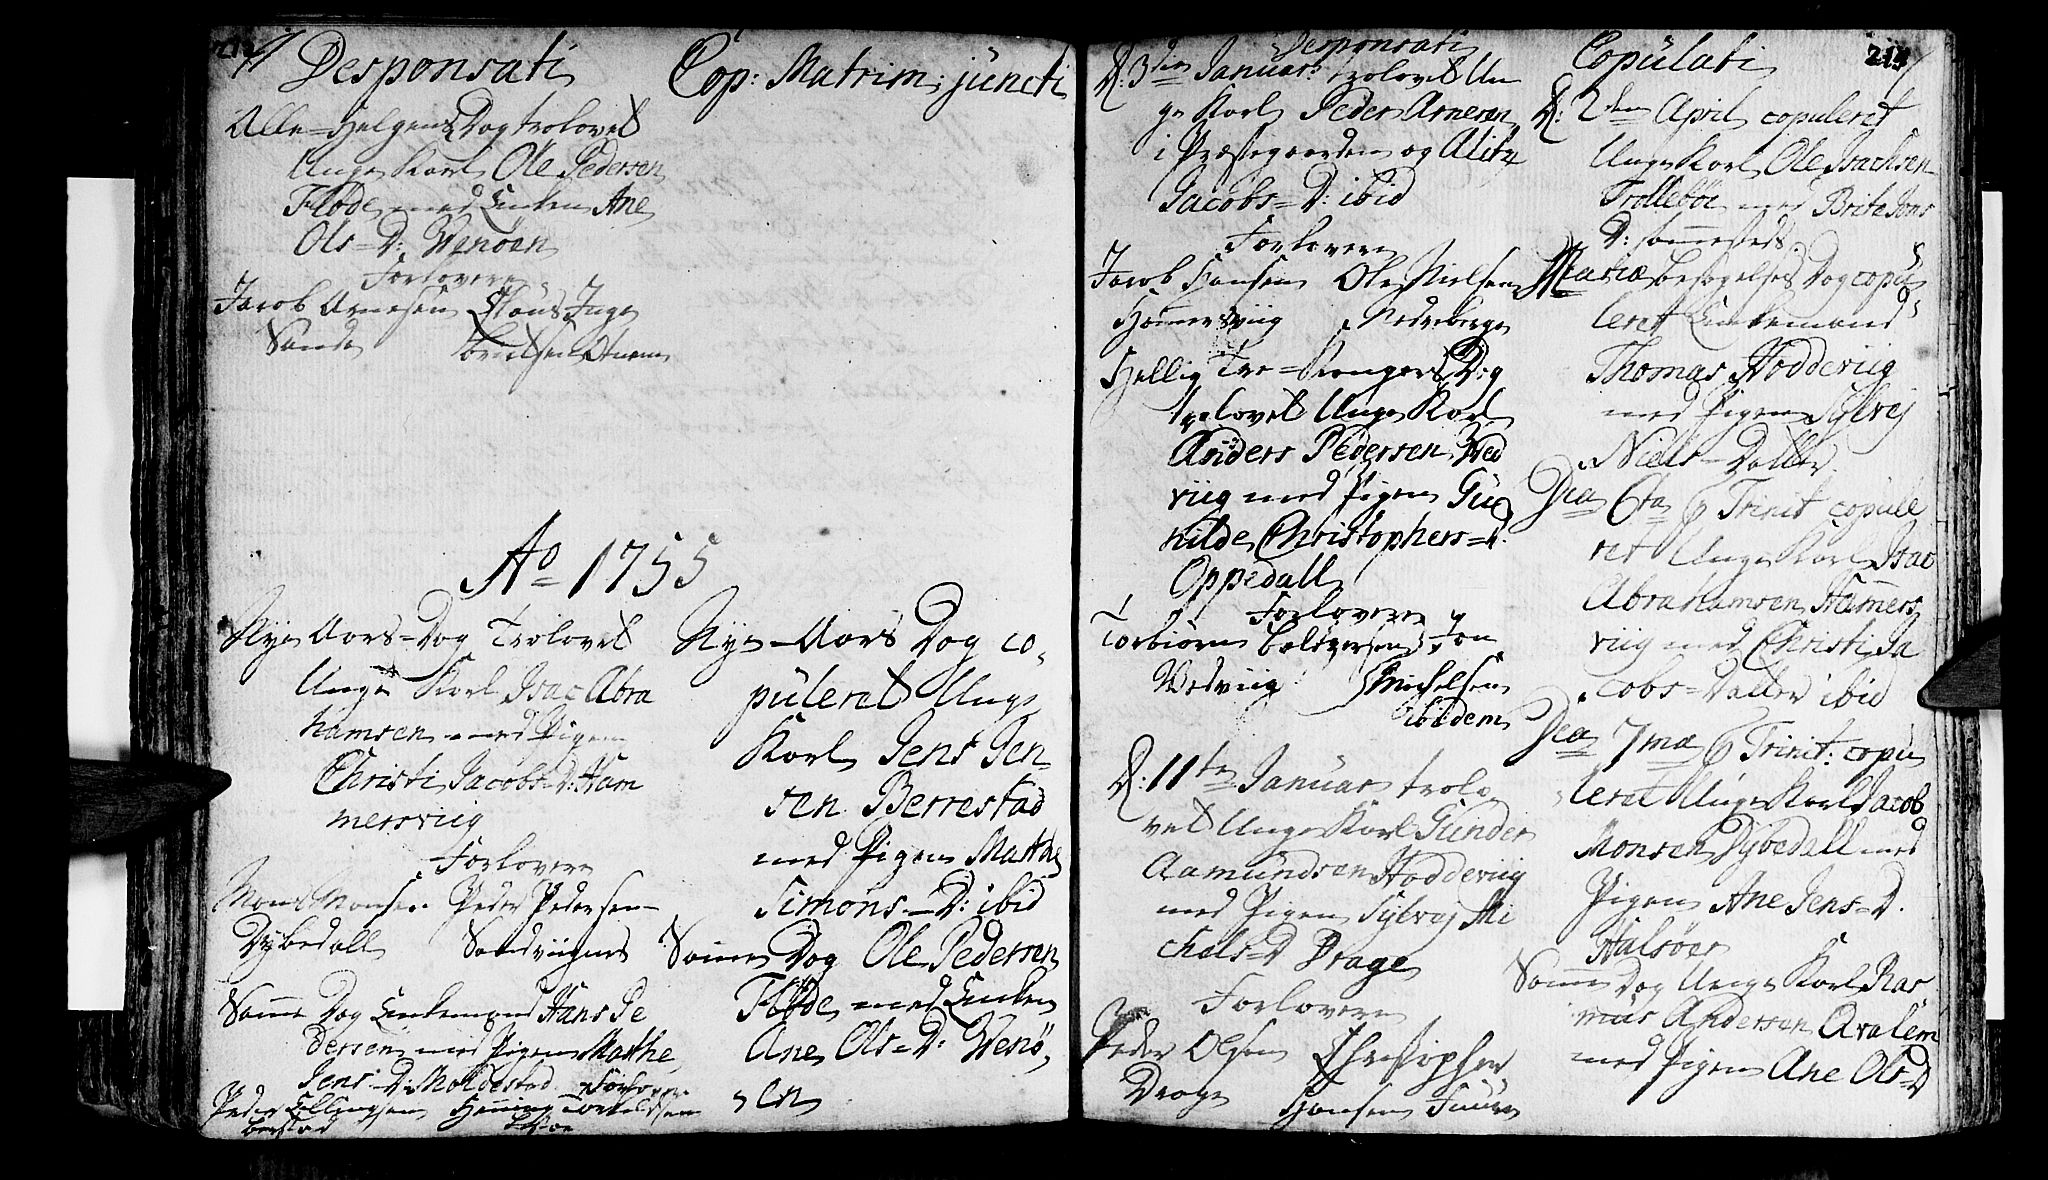 Desponsati
Alle-Helgens Dag trolovet
Unge Karl Ole Pedersen
Fløde med Enken Ane
Ols-D: Wenøen
Forlovere
Jacob Arnesen Claus Inge
Sande brictsen Otnem
Cop: Matrim: juncti
Ao 1755
Nye Aars-Dag Trolovet
Unge Karl Isac Abra
hamsen med Pigen
Christi Jacobs-D: Ham
mersviig
Forlovere
Mons Monsen Peder Pedersen
Dybedall Sandviignes
Samme Dag Enkemand Hans Pe
dersen med Pigen Marthe
Jens-D: Moldestad Forlovere
Peder Ellingsen Henning Torkildsen
berstad
Nye-Aars Dag co-
puleret Unge
Karl Jens Jen
sen Berrestad
med Pigen Marthe
Simons-D: ibid
Samme Dag Ole Pedersen
Fløde med Enken
Ane Ols-D: Wenø-
en
Desponsati
D: 3den Januar: trolovet Un
ge Karl Peder Arnesen
i Præstegaarden og Alitze
Jacobs-D: ibid
Forlovere
Jacob Hansen Ole Nielsen
Hammersviig Nedreberge
Hellig Tre-Konger Dag
trolovet Unge Karl
Anders Pedersen Wed
viig med Pigen Gu
nilde Christophers-D.
Oppedall
Forlovere
Torbiørn Baltzersen, Jon
Wedviig Michelsen
ibidem
D: 11te Januar trolo
vet Unge Karl Gunder
Aamundsen Hodeviig
med Pigen Sylvej Mi
chels-D Drage
Forlovere
Peder Olsen Christopher
Drage Hansen Fuure
Copulati 214
D: 2den April copuleret
Unge Karl Ole Isachsen
Trollebøe med Brite Jons
D: sammesteds.
Mariæ besøgelses Dag copu
leret Enkemand
Thomas Hoddeviig
med Pigen Sylvej
Niels-Datter.
Dca 6ta p Trinit copule
ret Unge Karl Isac
Abrahamsen Hammers
viig med Christi Ja
cobs-Datter ibid
Dca 7ma p Trinit: copu
leret Unge Karl Jacob
Monsen Dybedall med
Pigen Ane Jens-D.
Halsøer
Samme Dag Unge Karl Ras
mus Andersen Aralem
med Pigen Ane Ols-D